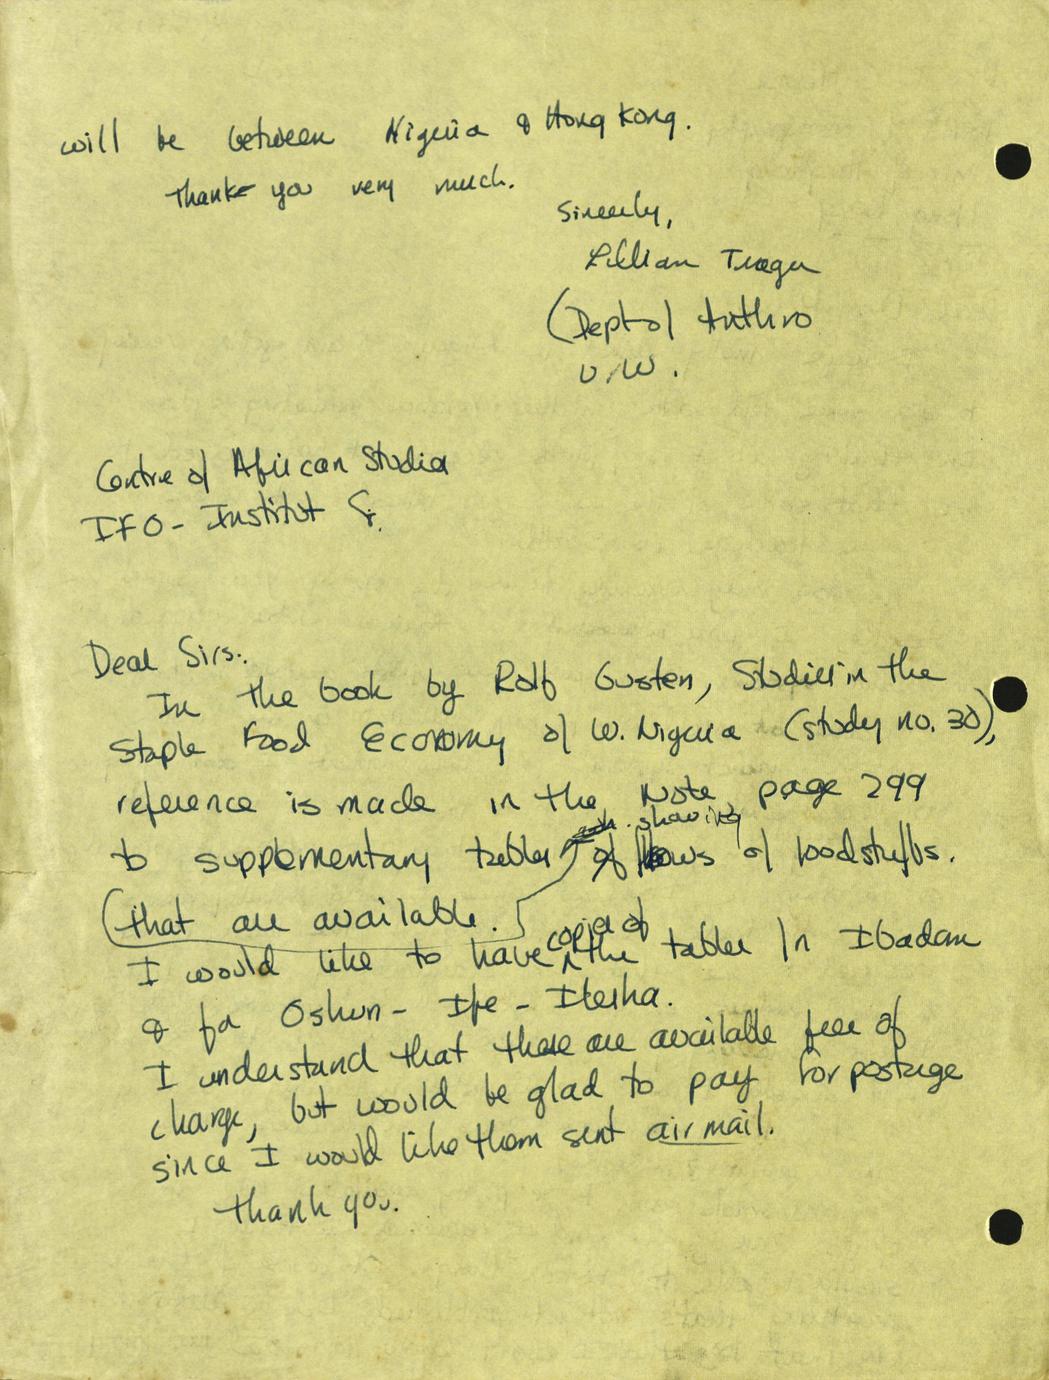 will be between Nigeria & Hong Kong.
Thank you very much.
Sincerely,
Lillian Trager
(Dept of Anthro
U.W.
Centre of African Studies
IFO - Institut
Dear Sirs:
In the book by Rolf Gusten, Studies in the
Staple Food Economy of W. Nigeria (study no. 30),
reference is made in the Note, page 299
showing
to supplementary tables of flows of foodstuffs.
(that are available.
copies of
I would like to have the tables for Ibadan
& for Oshun - Ife - Ilesha.
I understand that these are available free of
charge, but would be glad to pay for postage
since I would like them sent air mail.
Thank you.